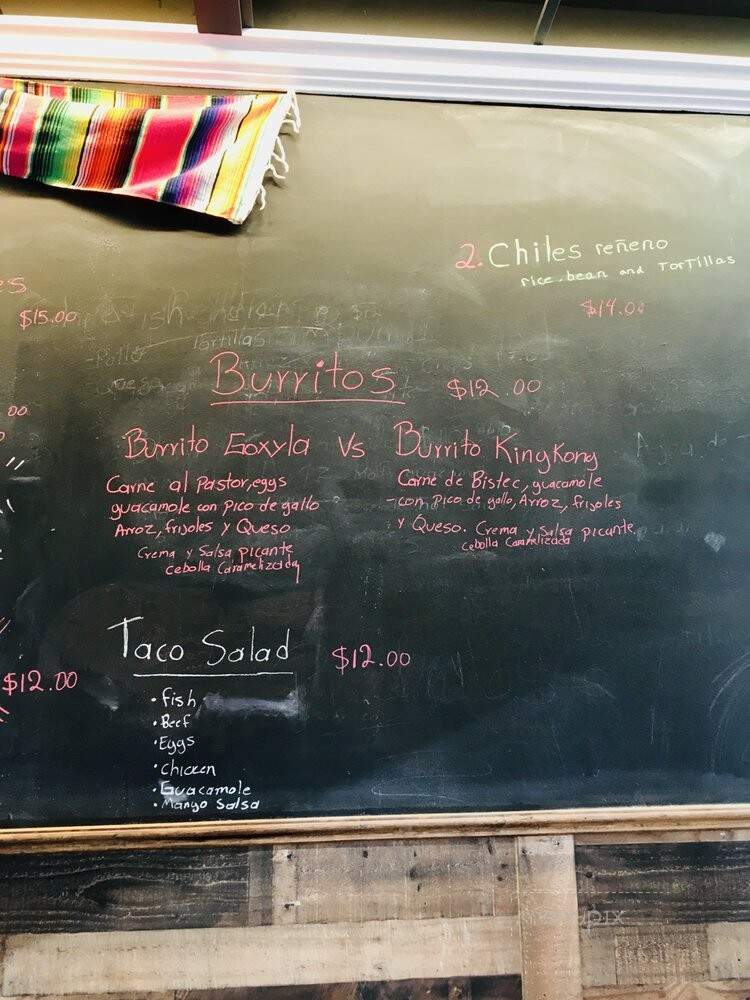 2. Chiles reñeno
rice. bean and Tortillas
es
$15.00
$14.00
Tortillas
-Pollo
Burritos $12.00
00
Burrito Goxyla Vs Burrito KingKong
Carne al Pastor, eggs
guacamole con Pico de gallo
Arroz, frijoles y Queso
Crema y Salsa picante
Cebolla Caramelizada
Carne de Bistec, guacamole
-con Pico de gallo, Arroz, frijoles
y Queso. Crema y Salsa picante
Cebolla Caramelizada
Taco Salad $12.00
$12.00
• fish
• Beef
• Eggs
• Chicken
• Guacamole
• Mango Salsa